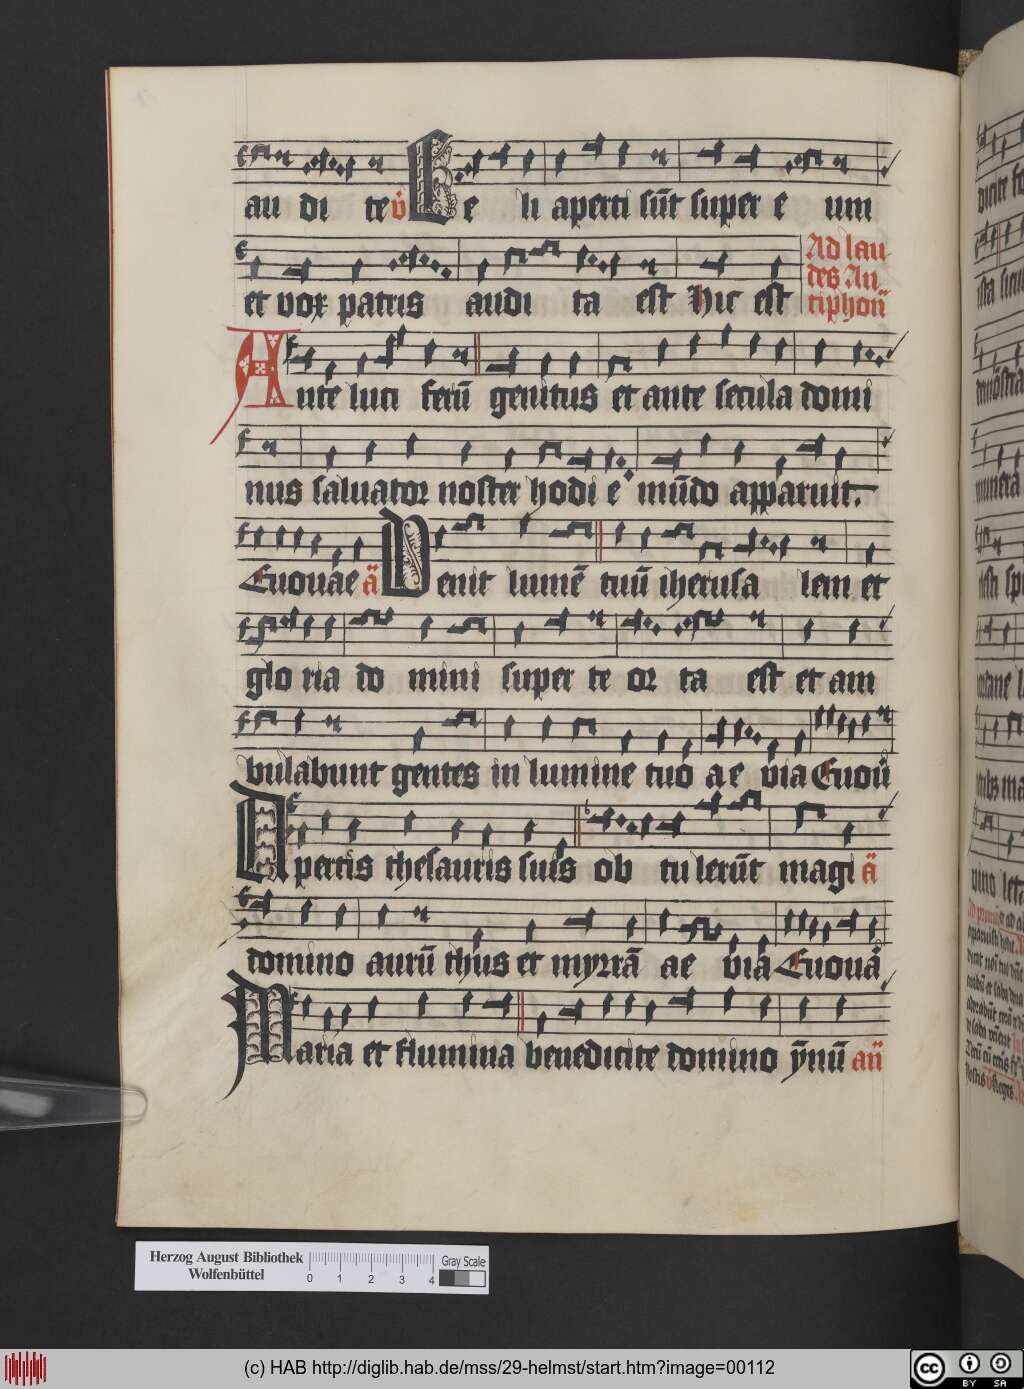 au di te v̄ Ce li aperti sūt super e um
et vox patris audi ta est Hic est
Ad lau
des An
tiphon̄
Ante luci ferū genitus et ante secula domi
nus saluator noster hodi e mūdo apparuit.
Euouae ā Venit lumē tuū iherusa lem et
glo ria do mini super te or ta est et am
bulabunt gentes in lumine tuo ae via Euou
Apertis thesauris suis ob tu lerūt magi ā
domino aurū thus et myrrā ae via Euoua
Maria et flumina benedicite domino ymnū an̄
Herzog August Bibliothek
Wolfenbüttel
0 1 2 3 4
Gray Scale
(c) HAB http://diglib.hab.de/mss/29-helmst/start.htm?image=00112
cc BY SA